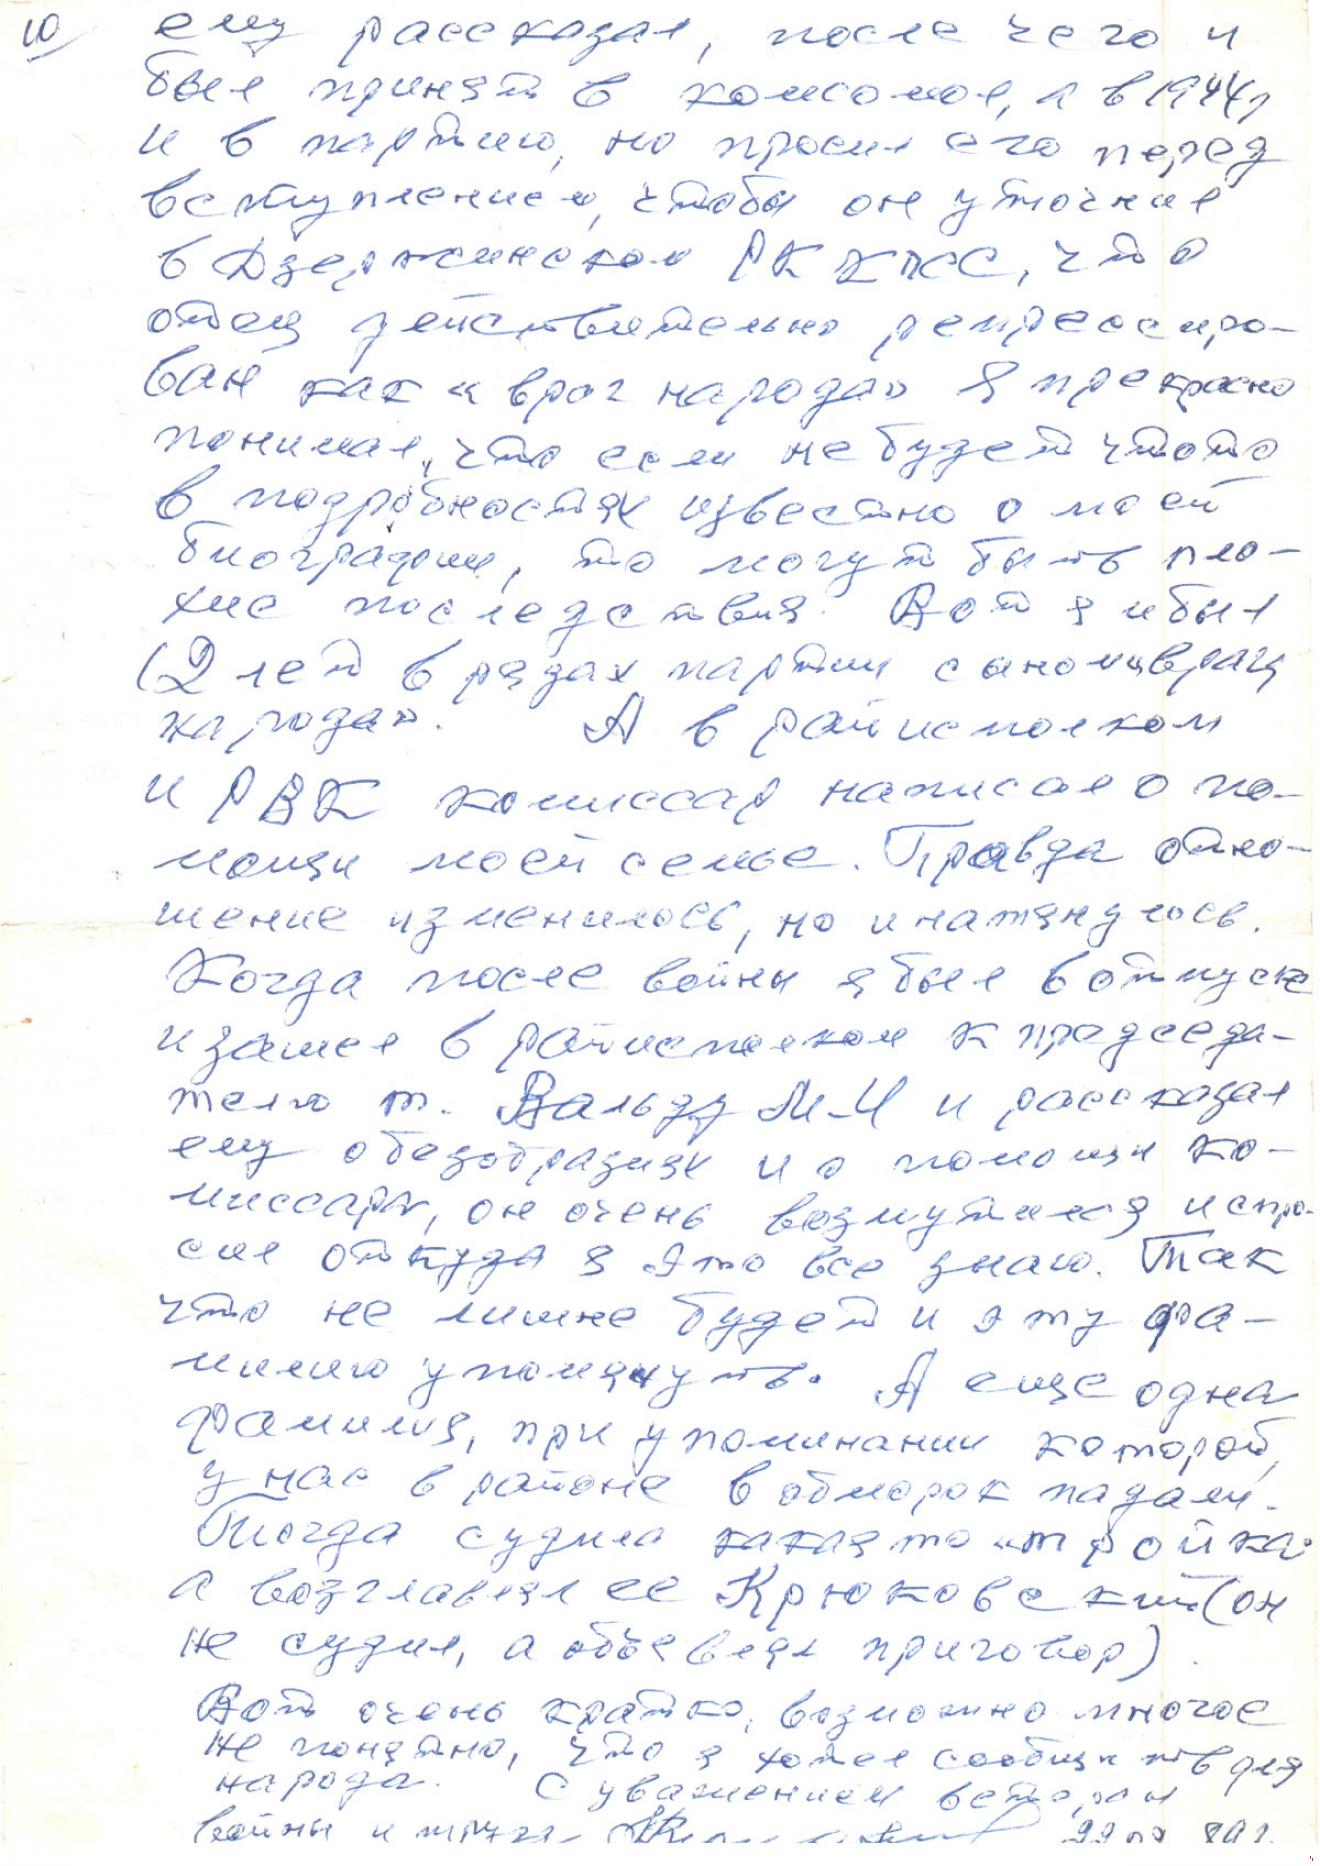 10 ему рассказал, после чего и
был принят в комсомол, а в 1944г
и в партию, но просил его перед
вступлением, чтобы он уточнил
в Дзержинском РК КПСС, что
отец действительно репрессиро-
ван как "враг народа" Я прекрасно
понимал, что если не будет что то
в подробностях известно о моей
биографии, то могут быть пло-
хие последствия. Вот я и был
(2 лет в рядах партии сыном "врага
народа". А в райисполком
и РВК комиссар написал о по-
мощи моей семье. Правда отно-
шение изменилось, но и натянулось.
Когда после войны я был в отпуске
и зашел в райисполком к председа-
телю т. Вальду М-И и рассказал
ему о безобразиях и о помощи ко-
миссара, он очень возмутился и спро-
сил откуда я это все знаю. Так
что не лишне будет и эту фа-
милию упомянуть. А еще одна
фамилия, при упоминании которой,
у нас в районе в обморок падали.
Тогда судила какая то "тройка"
а возглавлял ее Крюковский (он
не судил, а объявлял приговор).
Вот очень кратко, возможно многое
не понятно, что я хотел сообщить для
народа. С уважением ветеран
войны и труда